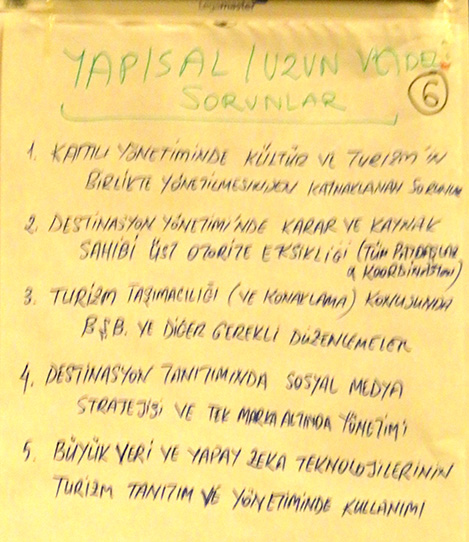 Legamaster
YAPISAL / UZUN VADELİ
SORUNLAR
6
1. KAMU YÖNETİMİNDE KÜLTÜR VE TURİZM'İN
BİRLİKTE YÖNETİLMESİNDEN KAYNAKLANAN SORUNLAR
2. DESTİNASYON YÖNETİMİ'NDE KARAR VE KAYNAK
SAHİBİ ÜST OTORİTE EKSİKLİĞİ (TÜM PAYDAŞLAR
KOORDİNASYONU)
3. TURİZM TAŞIMACILIĞI (VE KONAKLAMA) KONUSUNDA
BŞB. VE DİĞER GEREKLİ DÜZENLEMELER
4. DESTİNASYON TANITIMINDA SOSYAL MEDYA
STRATEJİSİ VE TEK MARKA ALTINDA YÖNETİM'İ
5. BÜYÜK VERİ VE YAPAY ZEKA TEKNOLOJİLERİNİN
TURİZM TANITIM VE YÖNETİMİNDE KULLANIMI